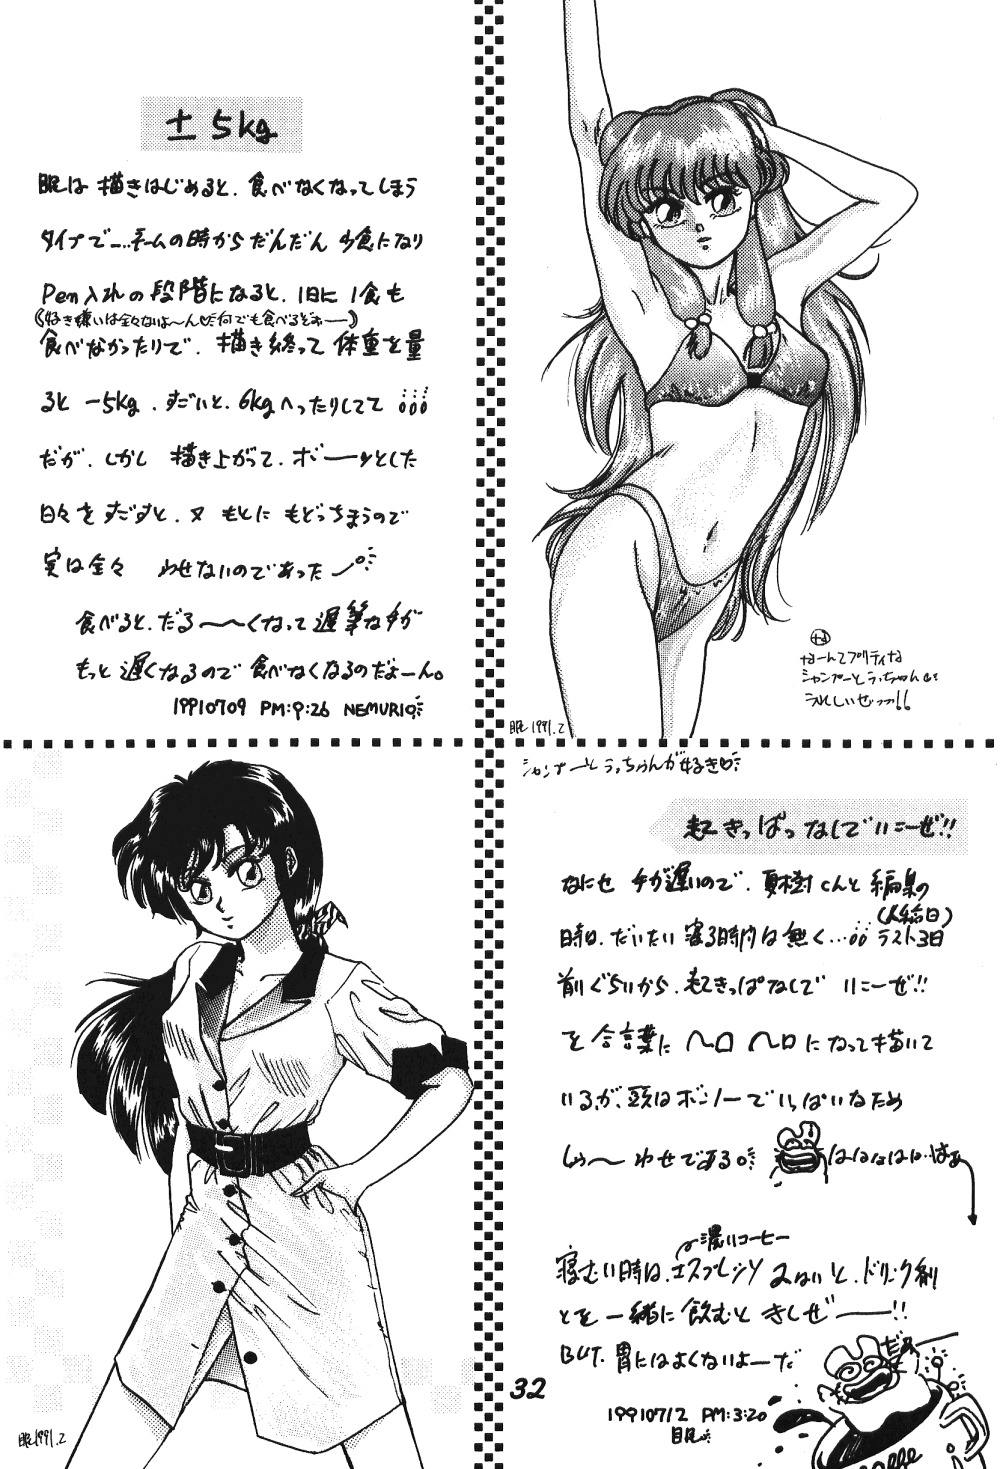 ±5kg
眠は 描きはじめると、食べなくなってしまう
タイプで…ネームの時から だんだん 少食になり
Pen入れの段階になると、1日に 1食も
(好き嫌いは全々ないよ〜ん♡だ何でも食べるとネーー)
食べなかったりで、描き終って 体重を量
ると −5kg、すごいと、6kgへったりしてて
だが、しかし 描き上がって、ボーーッとした
日々を すごすと、又 もとに もどっちまうので
実は全々 やせないのであった
食べると、だる〜〜くなって 遅筆な手が
もっと 遅くなるので 食べなくなるのだよーん。
19910709 PM:9:26 NEMURIO
な
なーんてプリティな
シャンプーとうっちゃん
うれしいぜっっ!!
眠 1991.2
シャンプーとうっちゃんが好き♡
起きっぱっなしで いこーぜ!!
なにせ 手が遅いので、夏樹くんと 編集の
(人締日)
時は、だいたい 寝る時間は無く… ラスト3日
前ぐらいから、起きっぱなしで いこーぜ!!
を 合言葉に ヘロ ヘロになって描いて
いるが、頭はボンノーでいっぱいなため
し〜 わせである
はははははは…はあ
濃いコーヒー
寝むい時は、エスプレッソ みないと、ドリンク剤
とを 一緒に 飲むと きしぜーー!!
BUT. 胃にはよくないよーだ
だめ
32
19910712 PM:3:20
眠
眠 1991.2